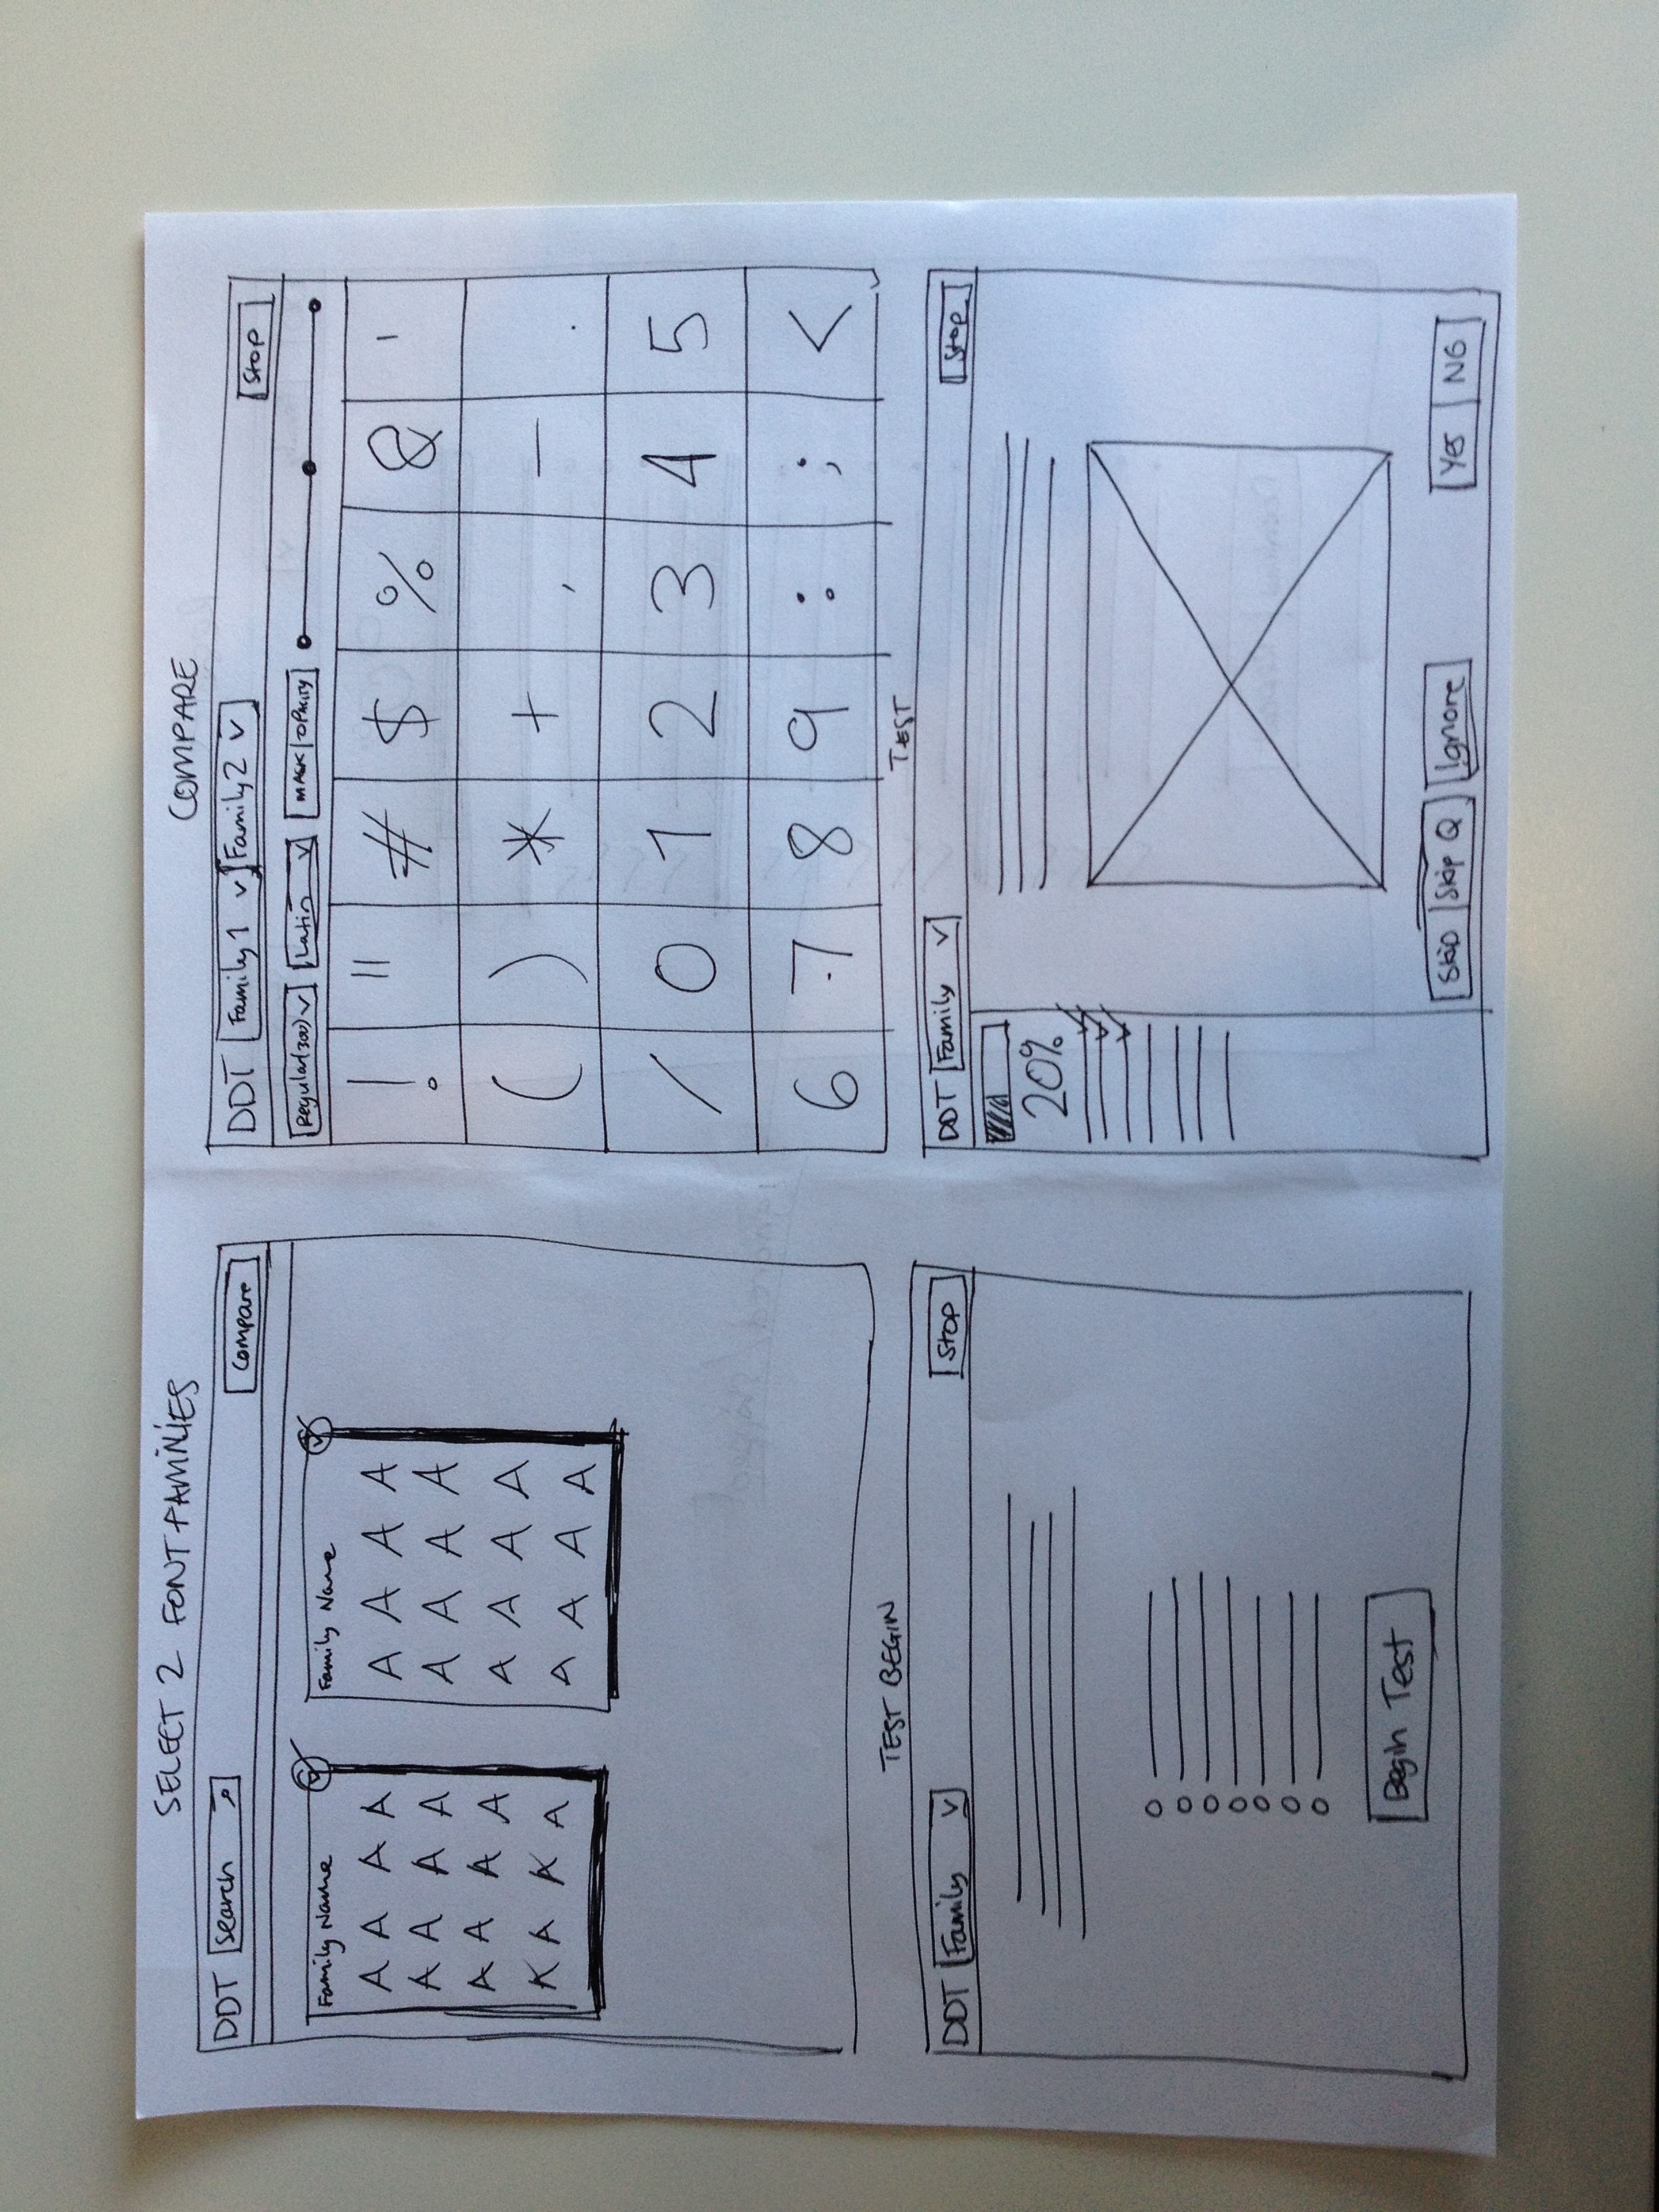 SELECT 2 FONT FAMILIES
DDT Search Compare
Family Name Family Name
A A A A A A A A
A A A A A A A A
A A A A A A A A
K A K A A A A A
COMPARE
DDT Family 1 Family 2 Stop
Regular(300) Latin MASK OPACITY
! " # $ % & '
( ) * + , - .
/ 0 1 2 3 4 5
6 7 8 9 : ; <
TEST BEGIN
DDT Family STOP
Begin Test
TEST
DDT Family Stop
20%
Skip Skip Q Ignore Yes NG